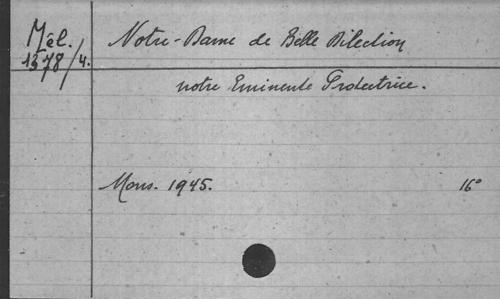 Mél.
1378/4.
Notre-Dame de Belle Dilection
notre Eminente Protectrice.
Mons. 1945.
16°